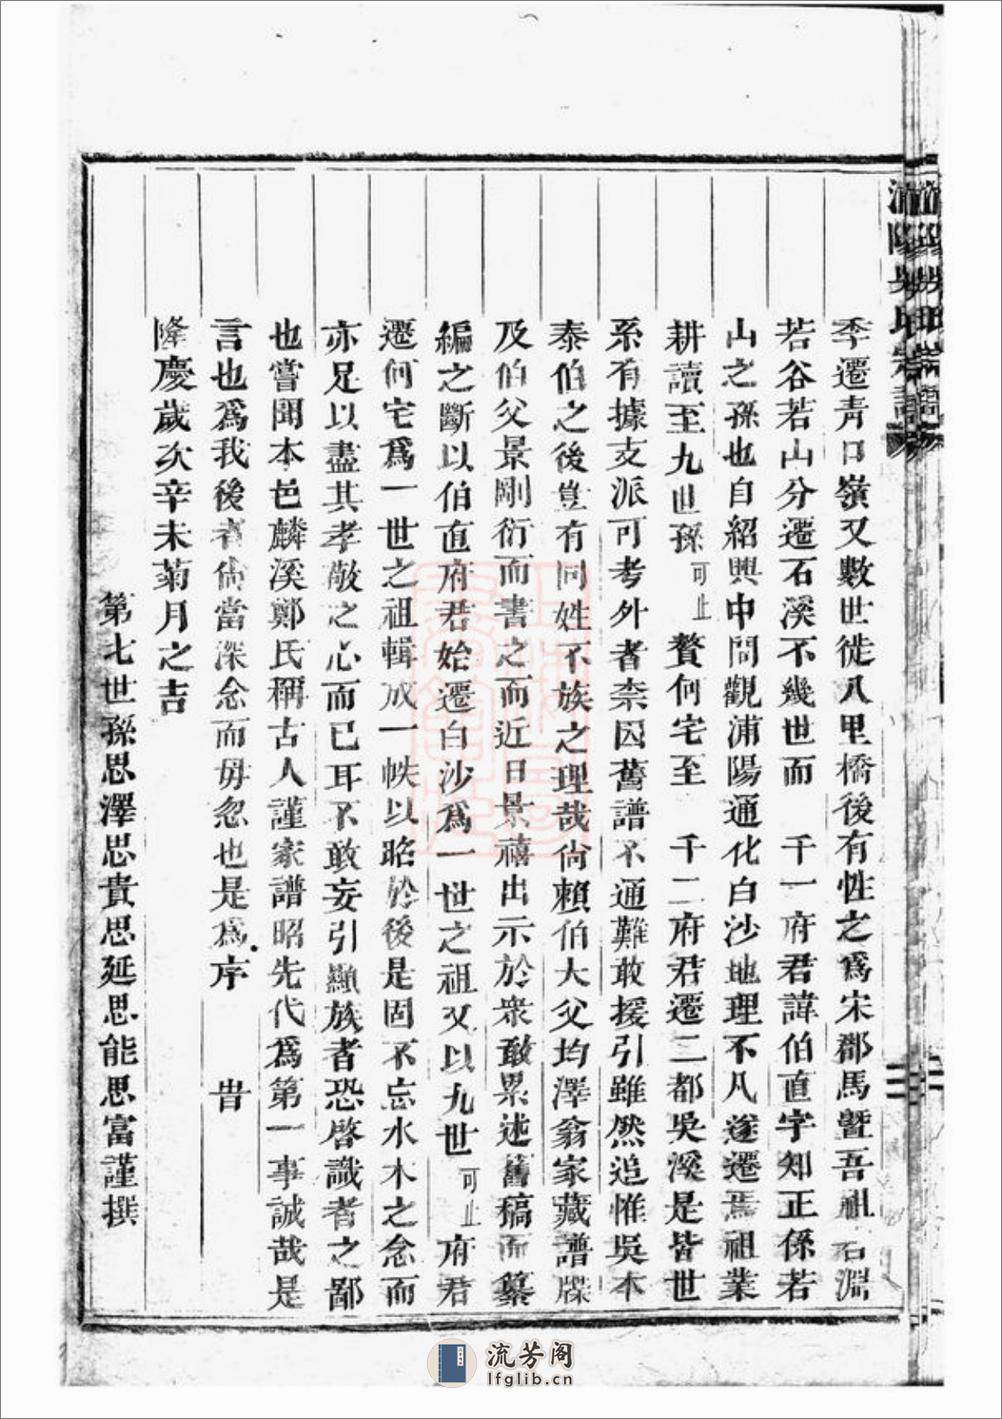 季遷青口嶺又數世徙八里橋後有性之爲宋郡馬暨吾祖若淵
若谷若山分遷石溪不幾世而 千一府君諱伯直字知正係若
山之孫也自紹興中間觀浦陽通化白沙地理不凡遂遷焉祖業
耕讀至九世孫可止贅何宅至 千二府君遷二都吳溪是皆世
系有據支派可考外者柰因舊譜不通難敢援引雖然追惟吳本
泰伯之後豈有同姓不族之理哉尙賴伯大父均澤翁家藏譜牒
及伯父景剛衍而書之而近日景禧出示於衆敢累述舊稿而纂
編之斷以伯直府君始遷白沙爲一世之祖又以九世可止府君
遷何宅爲一世之祖輯成一帙以昭於後是固不忘水木之念而
亦足以盡其孝敬之心而已耳不敢妄引顯族者恐啓識者之鄙
也嘗聞本邑麟溪鄭氏稱古人謹家譜昭先代爲第一事誠哉是
言也爲我後者尙當深念而毋忽也是爲序 旹
隆慶歲次辛未菊月之吉
第七世孫思澤思貴思延思能思富謹撰
流芳阁
lfglib.cn